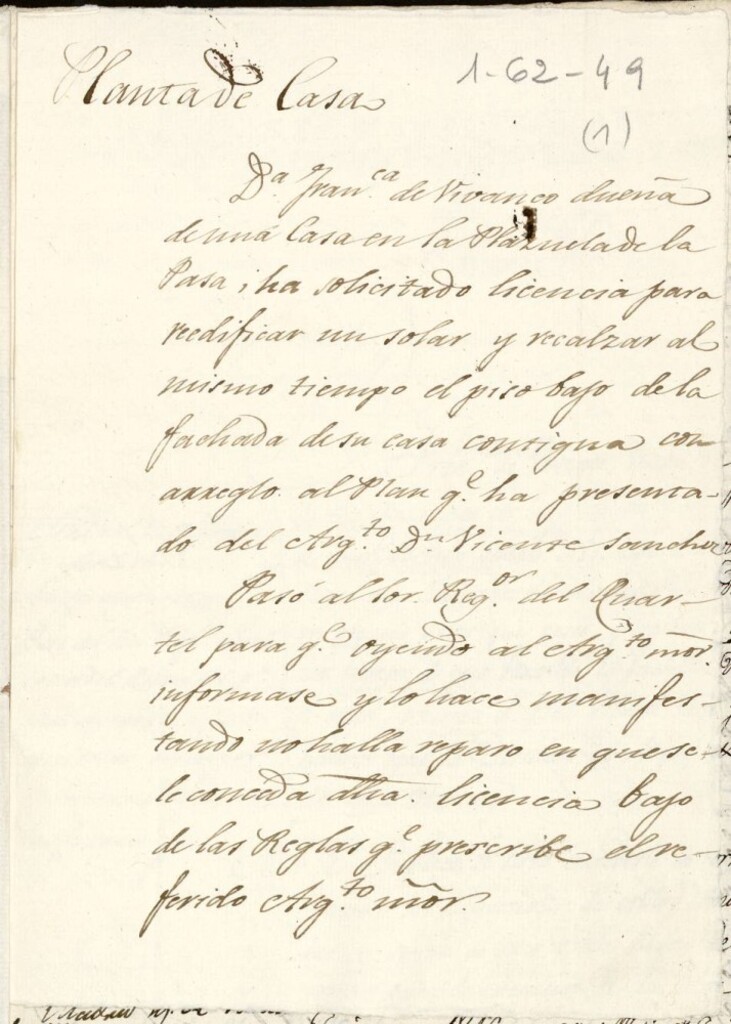 Planta de Casa
1-62-49
(1)
Dª Franca de Vivanco dueña
de una Casa en la Plazuela de la
Pasa, ha solicitado licencia para
reedificar un solar y recalzar al
mismo tiempo el piso bajo de la
fachada de su casa contigua con
arreglo al Plan qe ha presenta-
do del Arqto Dn Vicente Sanchez
Pasó al Sor. Regor del Quar-
tel para qe oyendo al Arqto mõr.
informase y lo hace manifes-
tando no halla reparo en que se
le conceda dha. licencia bajo
de las Reglas qe prescribe el re-
ferido Arqto mõr.